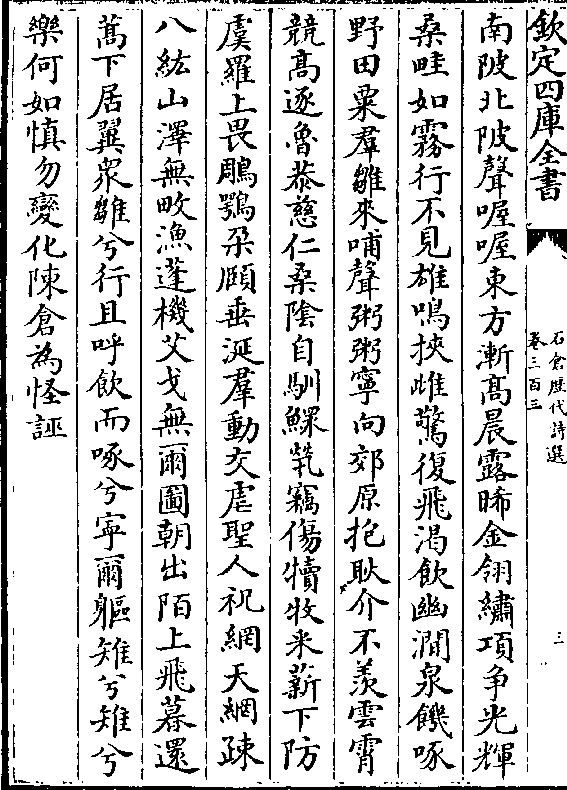 欽定四庫全書
石倉歴代詩選
卷三百三
三
南陂北陂聲喔喔東方漸髙晨露晞金翎繡項争光輝
桑畦如霧行不見雄鳴挾雌驚復飛渴飲幽澗泉饑啄
野田粟羣雛来哺聲粥粥寧向郊原抱耿介不羡雲霄
競髙逐魯恭慈仁桑陰自馴鰥煢竊傷犢牧来薪下防
虞羅上畏鵰鶚朶頥垂涎羣動交虐聖人祝網天網疎
八紘山澤無畋漁蓬機艾戈無爾圖朝出陌上飛暮還
蒿下居翼衆雛兮行且呼飲而啄兮寧爾軀雉兮雉兮
樂何如慎勿變化陳倉為怪誣